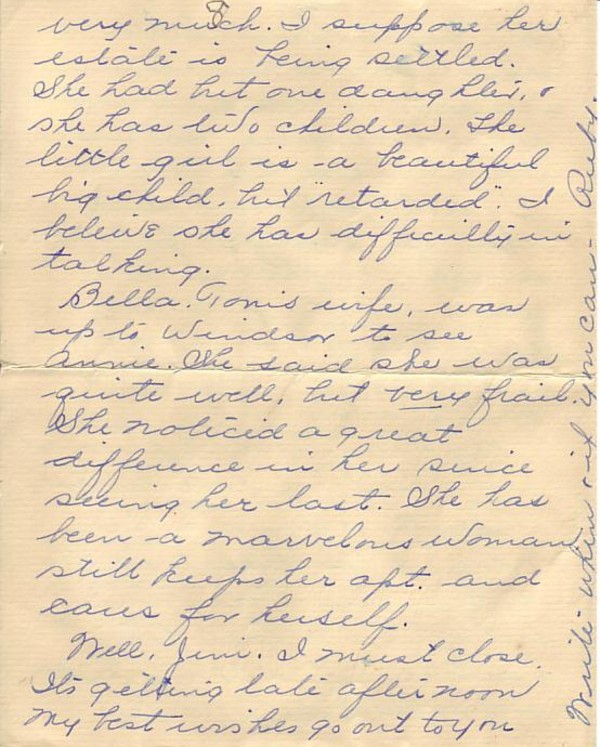 8
very much. I suppose her
estate is being settled.
She had but one daughter, &
she has two children. The
little girl is a beautiful
big child, but "retarded". I
beleive she has difficulty in
talking.
Bella, Tom's wife, was
up to Windsor to see
Annie. She said she was
quite well, but very frail.
She noticed a great
difference in her since
seeing her last. She has
been a marvelous woman
still keeps her apt. and
cares for herself.
Well, Jim. I must close.
Its getting late afternoon
My best wishes go out to you
Write when & if you can - Ruby.